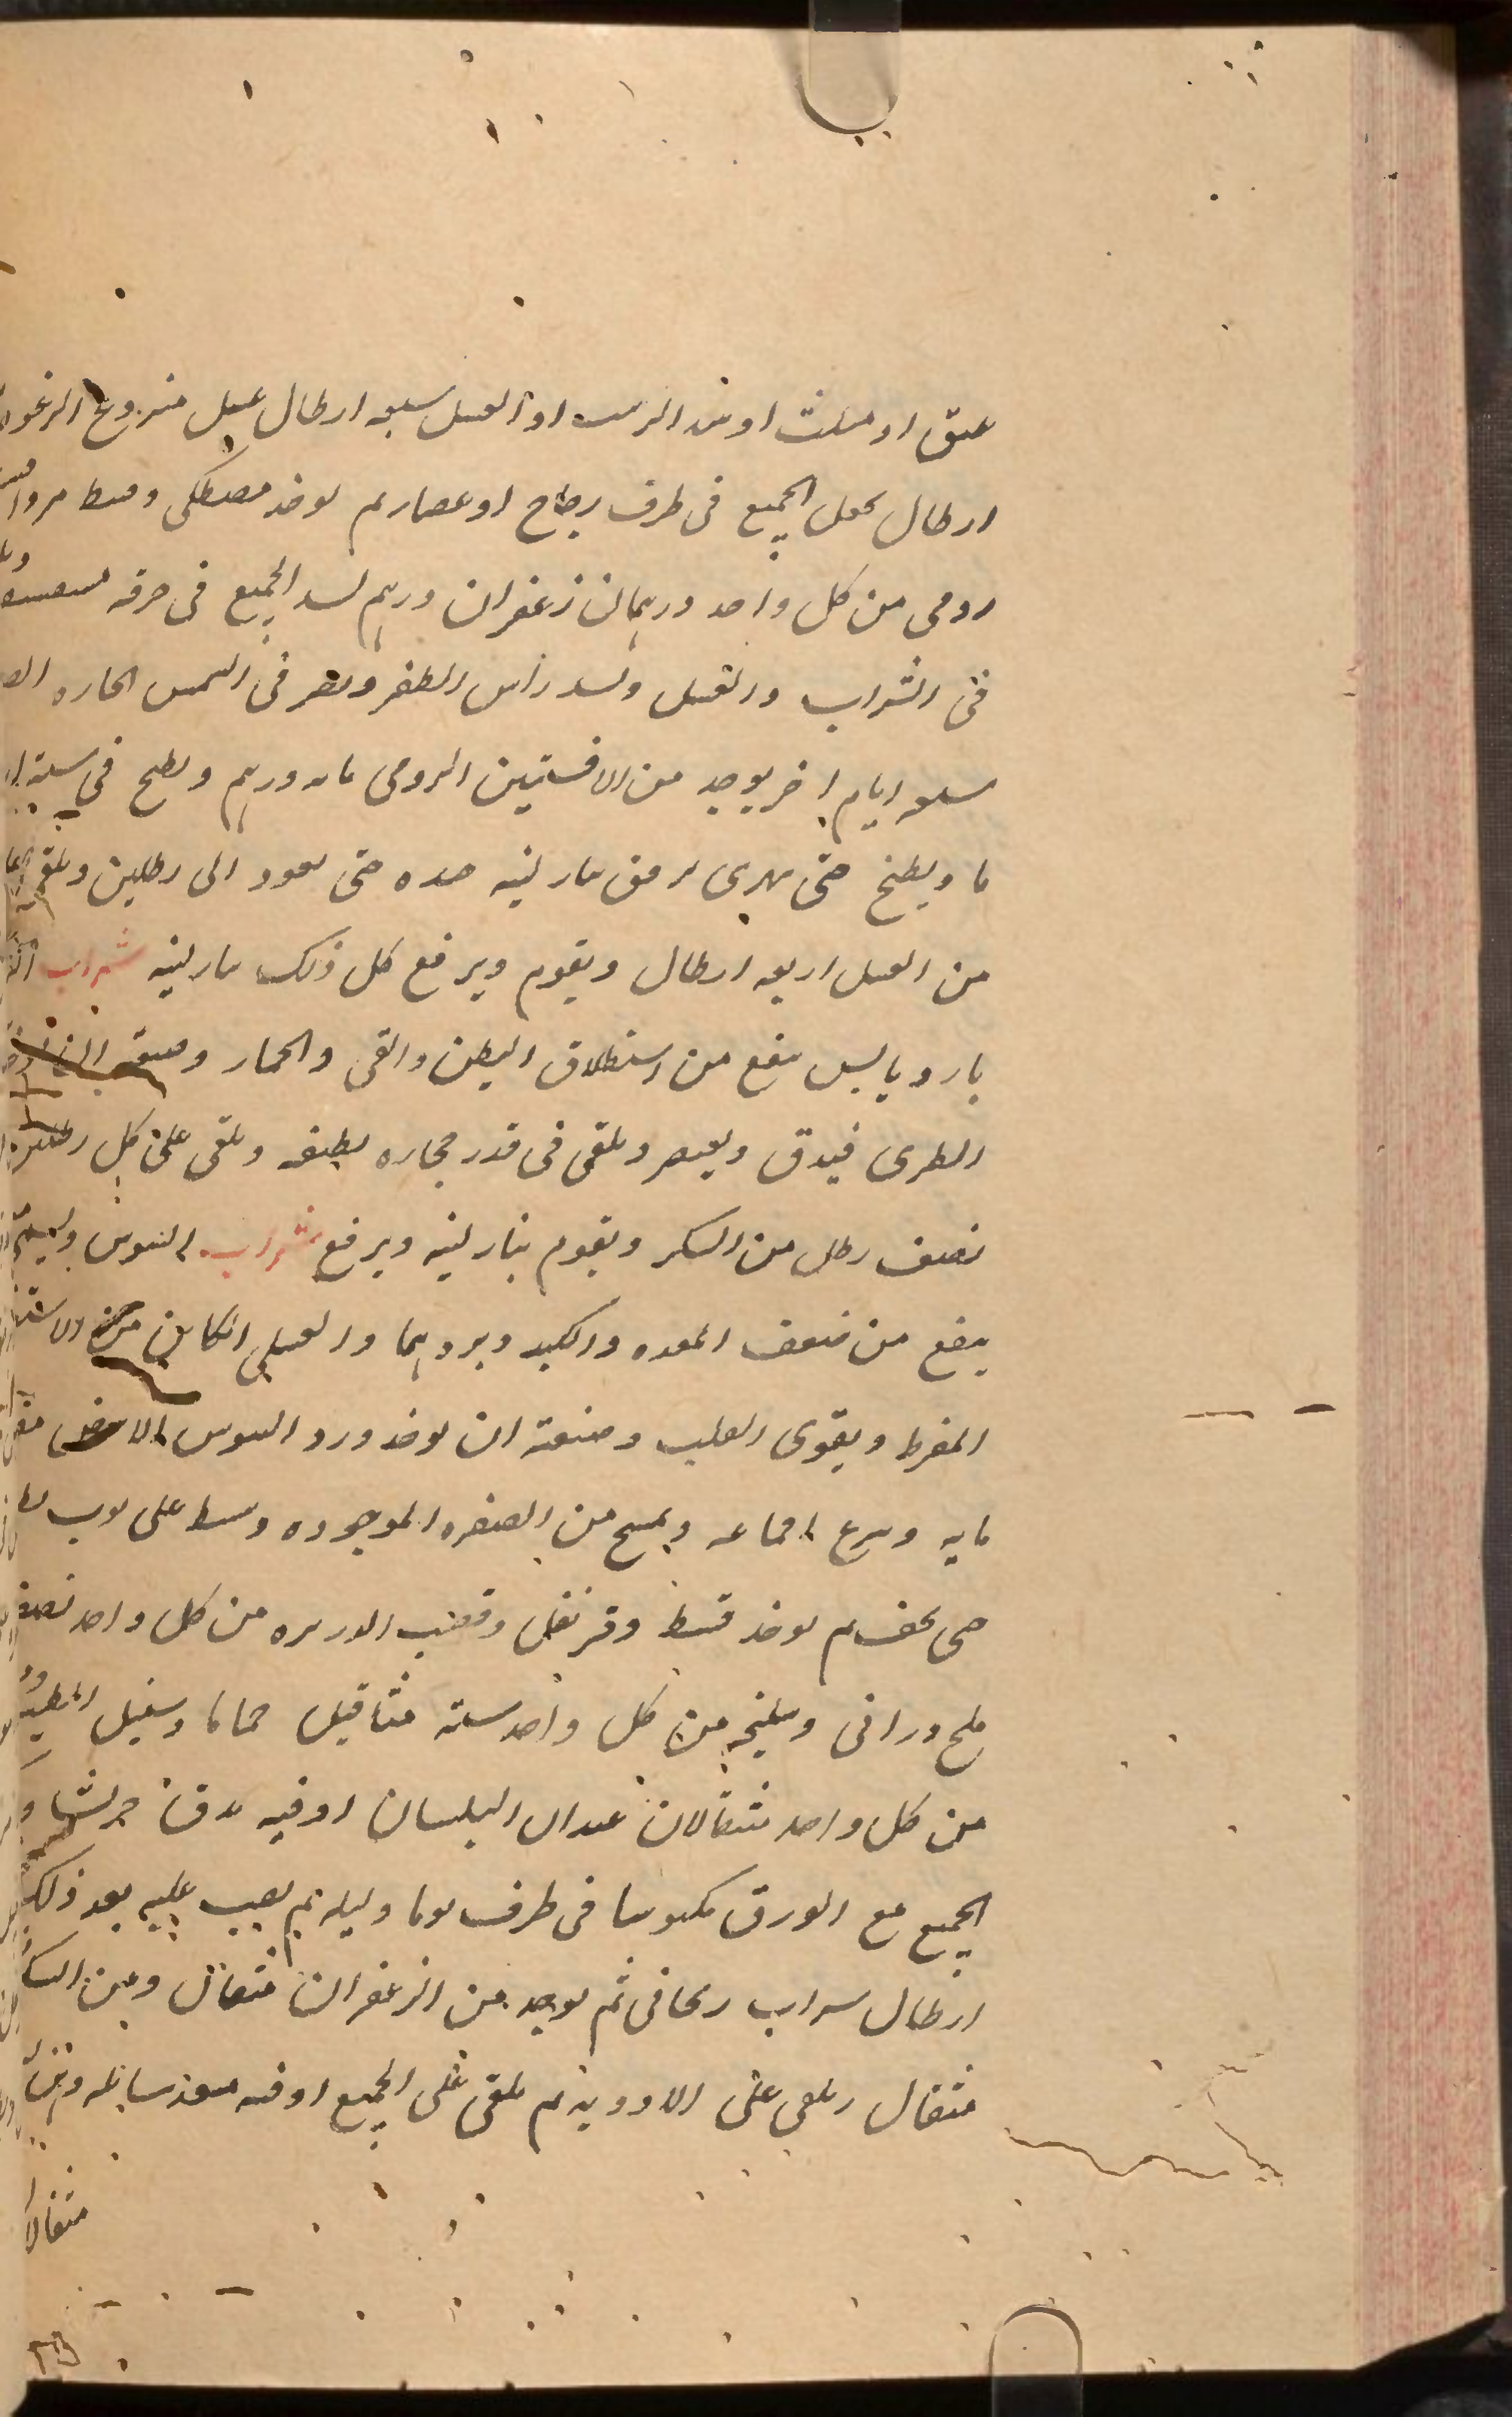 عتق او مثلث او بند الزبيب او العسل سبعه ارطال عسل منزوع الرغوه
ارطال يجعل الجميع فى ظرف زجاج او عصار ثم يوخذ مصطكى وقسط مر و
رومى من كل واحد درهمان زعفران درهم يشد الجميع فى خرقه
فى الشراب والعسل ويشد راس الظرف ويصير فى الشمس الحاره
سبعه ايام اخر يوخذ من الافسنتين الرومى مايه درهم ويطبخ فى سته
ما ويطبخ حتى يهرى برفق بنار لينه جيده حتى يعود الى رطلين ويلقى
من العسل اربعه ارطال ويقوم ويرفع كل ذلك بنار لينه شراب
بارد يابس ينفع من استطلاق البطن والقى والخمار وصنعته ان
الطرى فيدق ويعصر ويلقى فى قدر حجاره نظيفه ويلقى على كل
نصف رطل من السكر ويقوم بنار لينه ويرفع شراب السوس
ينفع من ضعف المعده والكبد وبردهما والغشى الكاين من
المفرط ويقوى القلب وصنعته ان يوخذ ورد السوس الابيض
مايه وينزع اقماعه ويمسح من الصفره الموجوده ويبسط على ثوب
حتى يجف ثم يوخذ قسط وقرنفل وقصب الذريره من كل واحد نصف
ملح درانى وسليخه من كل واحد سته مثاقيل حماما وسنبل الطيب
من كل واحد مثقالان عيدان البلسان اوقيه يدق جريشا
الجميع مع الورق مكبوسا فى ظرف يوما وليله ثم يصب عليه بعد ذلك
ارطال شراب ريحانى ثم يوخذ من الزعفران مثقال ومن
مثقال ويلقى على الادويه ثم يلقى على الجميع اوقيه ميعه سايله
مثقالا